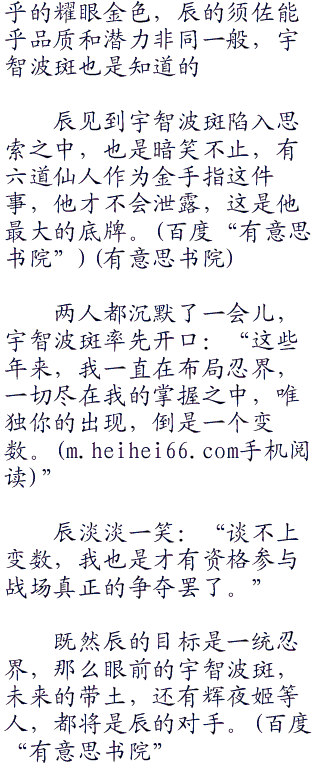 乎的耀眼金色，辰的须佐能
乎品质和潜力非同一般，宇
智波斑也是知道的
辰见到宇智波斑陷入思
索之中，也是暗笑不止，有
六道仙人作为金手指这件
事，他才不会泄露，这是他
最大的底牌。(百度“有意思
书院”)(有意思书院)
两人都沉默了一会儿，
宇智波斑率先开口：“这些
年来，我一直在布局忍界，
一切尽在我的掌握之中，唯
独你的出现，倒是一个变
数。(m.heihei66.com手机阅
读)”
辰淡淡一笑：“谈不上
变数，我也是才有资格参与
战场真正的争夺罢了。”
既然辰的目标是一统忍
界，那么眼前的宇智波斑，
未来的带土，还有辉夜姬等
人，都将是辰的对手。(百度
“有意思书院”